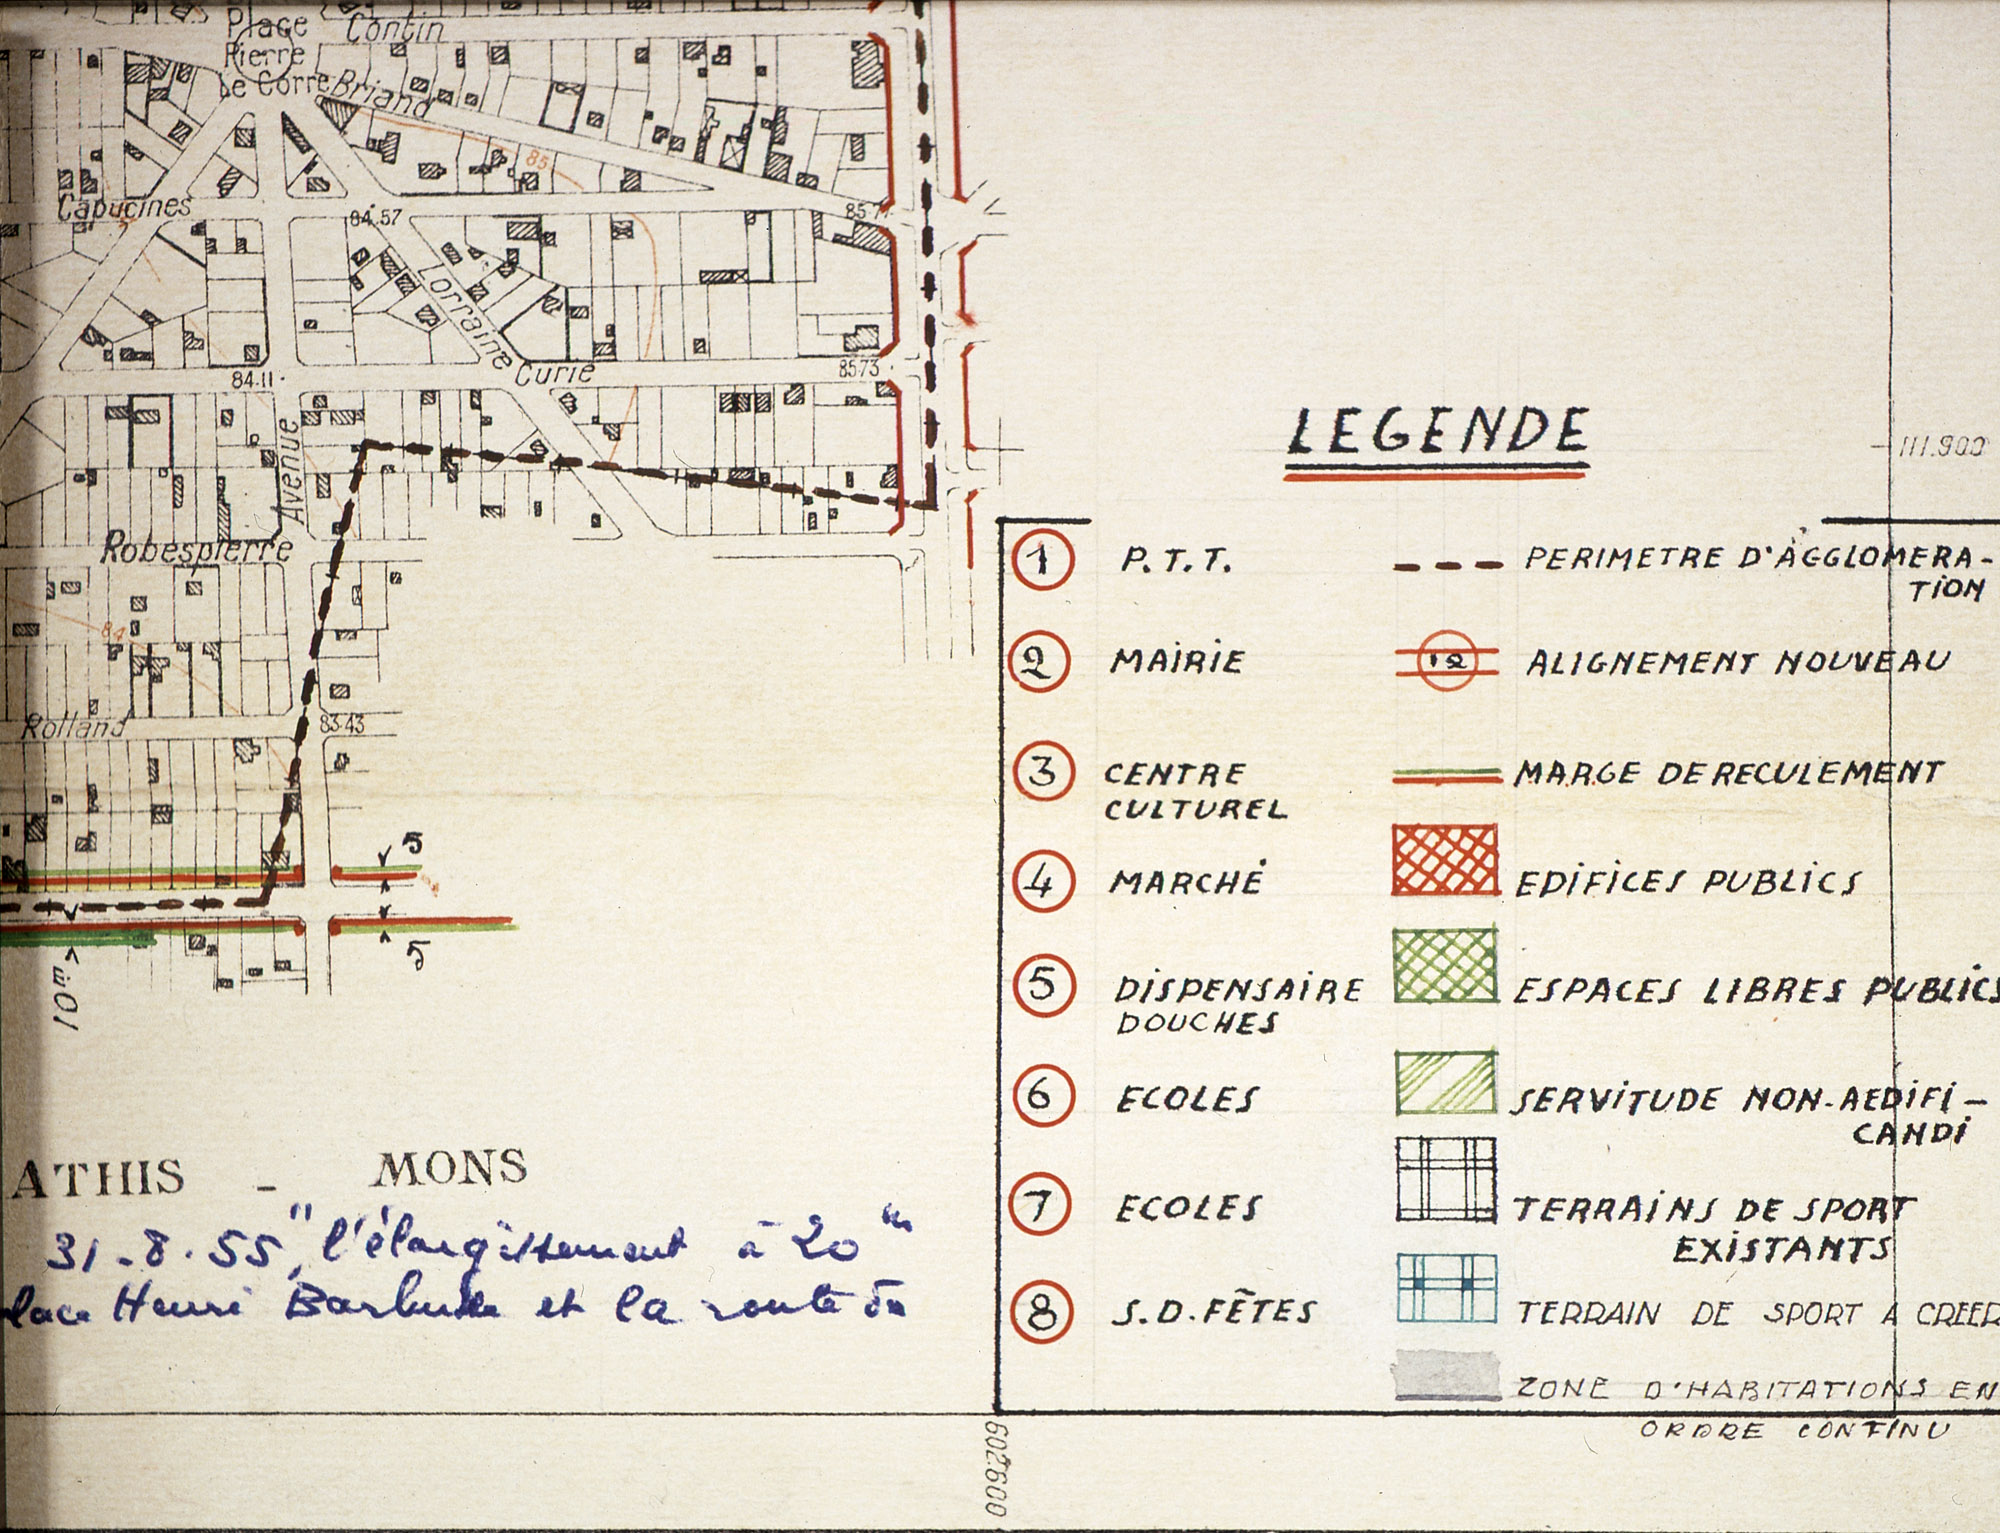 Place
Contin
Pierre
Le Corre
Briand
85
Capucines
84.57
85
Lorraine
Curie
84.11
85.73
Avenue
Robespierre
84
Rolland
83.43
5
5
10
ATHIS - MONS
31-8-55, "l'élargissement à 20 m
lace Henri Barbusse et la route de
LEGENDE
111.900
1 P.T.T.
2 MAIRIE
3 CENTRE
CULTUREL
4 MARCHÉ
5 DISPENSAIRE
DOUCHES
6 ECOLES
7 ECOLES
8 S.D.FÊTES
PERIMETRE D'AGGLOMERA-
TION
12 ALIGNEMENT NOUVEAU
MARGE DE RECULEMENT
EDIFICES PUBLICS
ESPACES LIBRES PUBLICS
SERVITUDE NON-AEDIFI-
CANDI
TERRAINS DE SPORT
EXISTANTS
TERRAIN DE SPORT A CREER
ZONE D'HABITATIONS EN
ORDRE CONTINU
602.600